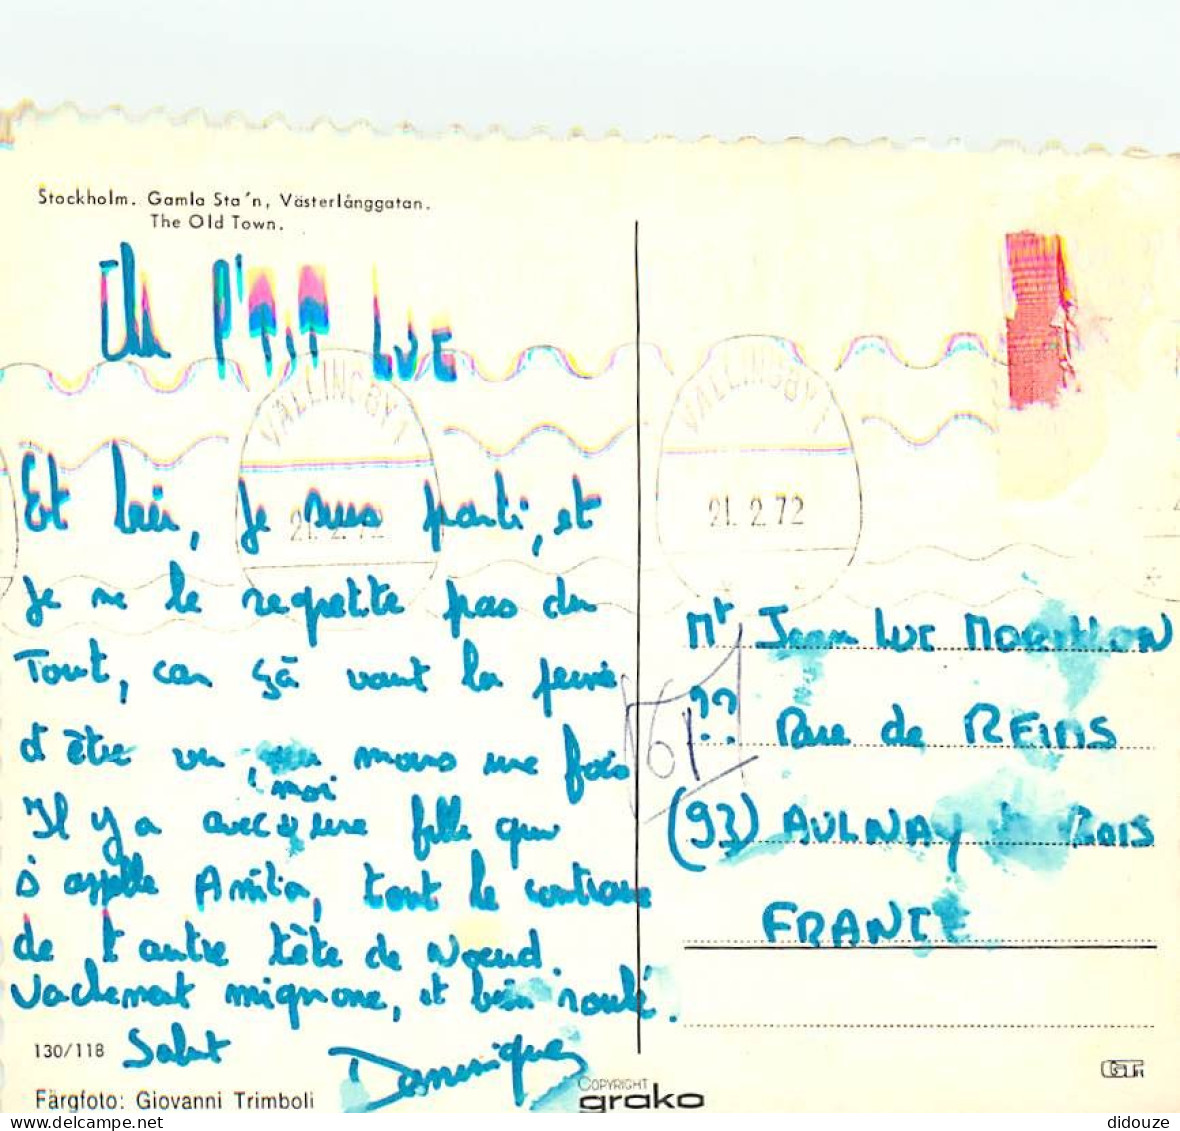 Stockholm. Gamla Sta'n, Västerlånggatan.
The Old Town.
P'TIT LUC
VÄLLINGBY 1
21. 2. 72
VÄLLINGBY 1
21. 2. 72
Et bien, je suis parti, et
je ne le regrette pas du
Tout, car çà vaut la peine
d'être vu, au moins une fois
Il y a avec moi une fille qui
s'appelle Anita, tout le contraire
de l'autre tête de Noeud.
Vachement mignone, et bien roulé.
Salut
Dominique
Mr Jean Luc
61
Rue de REIMS
(93) AULNAY BOIS
FRANCE
130/118
Färgfoto: Giovanni Trimboli
COPYRIGHT
grako
didouze